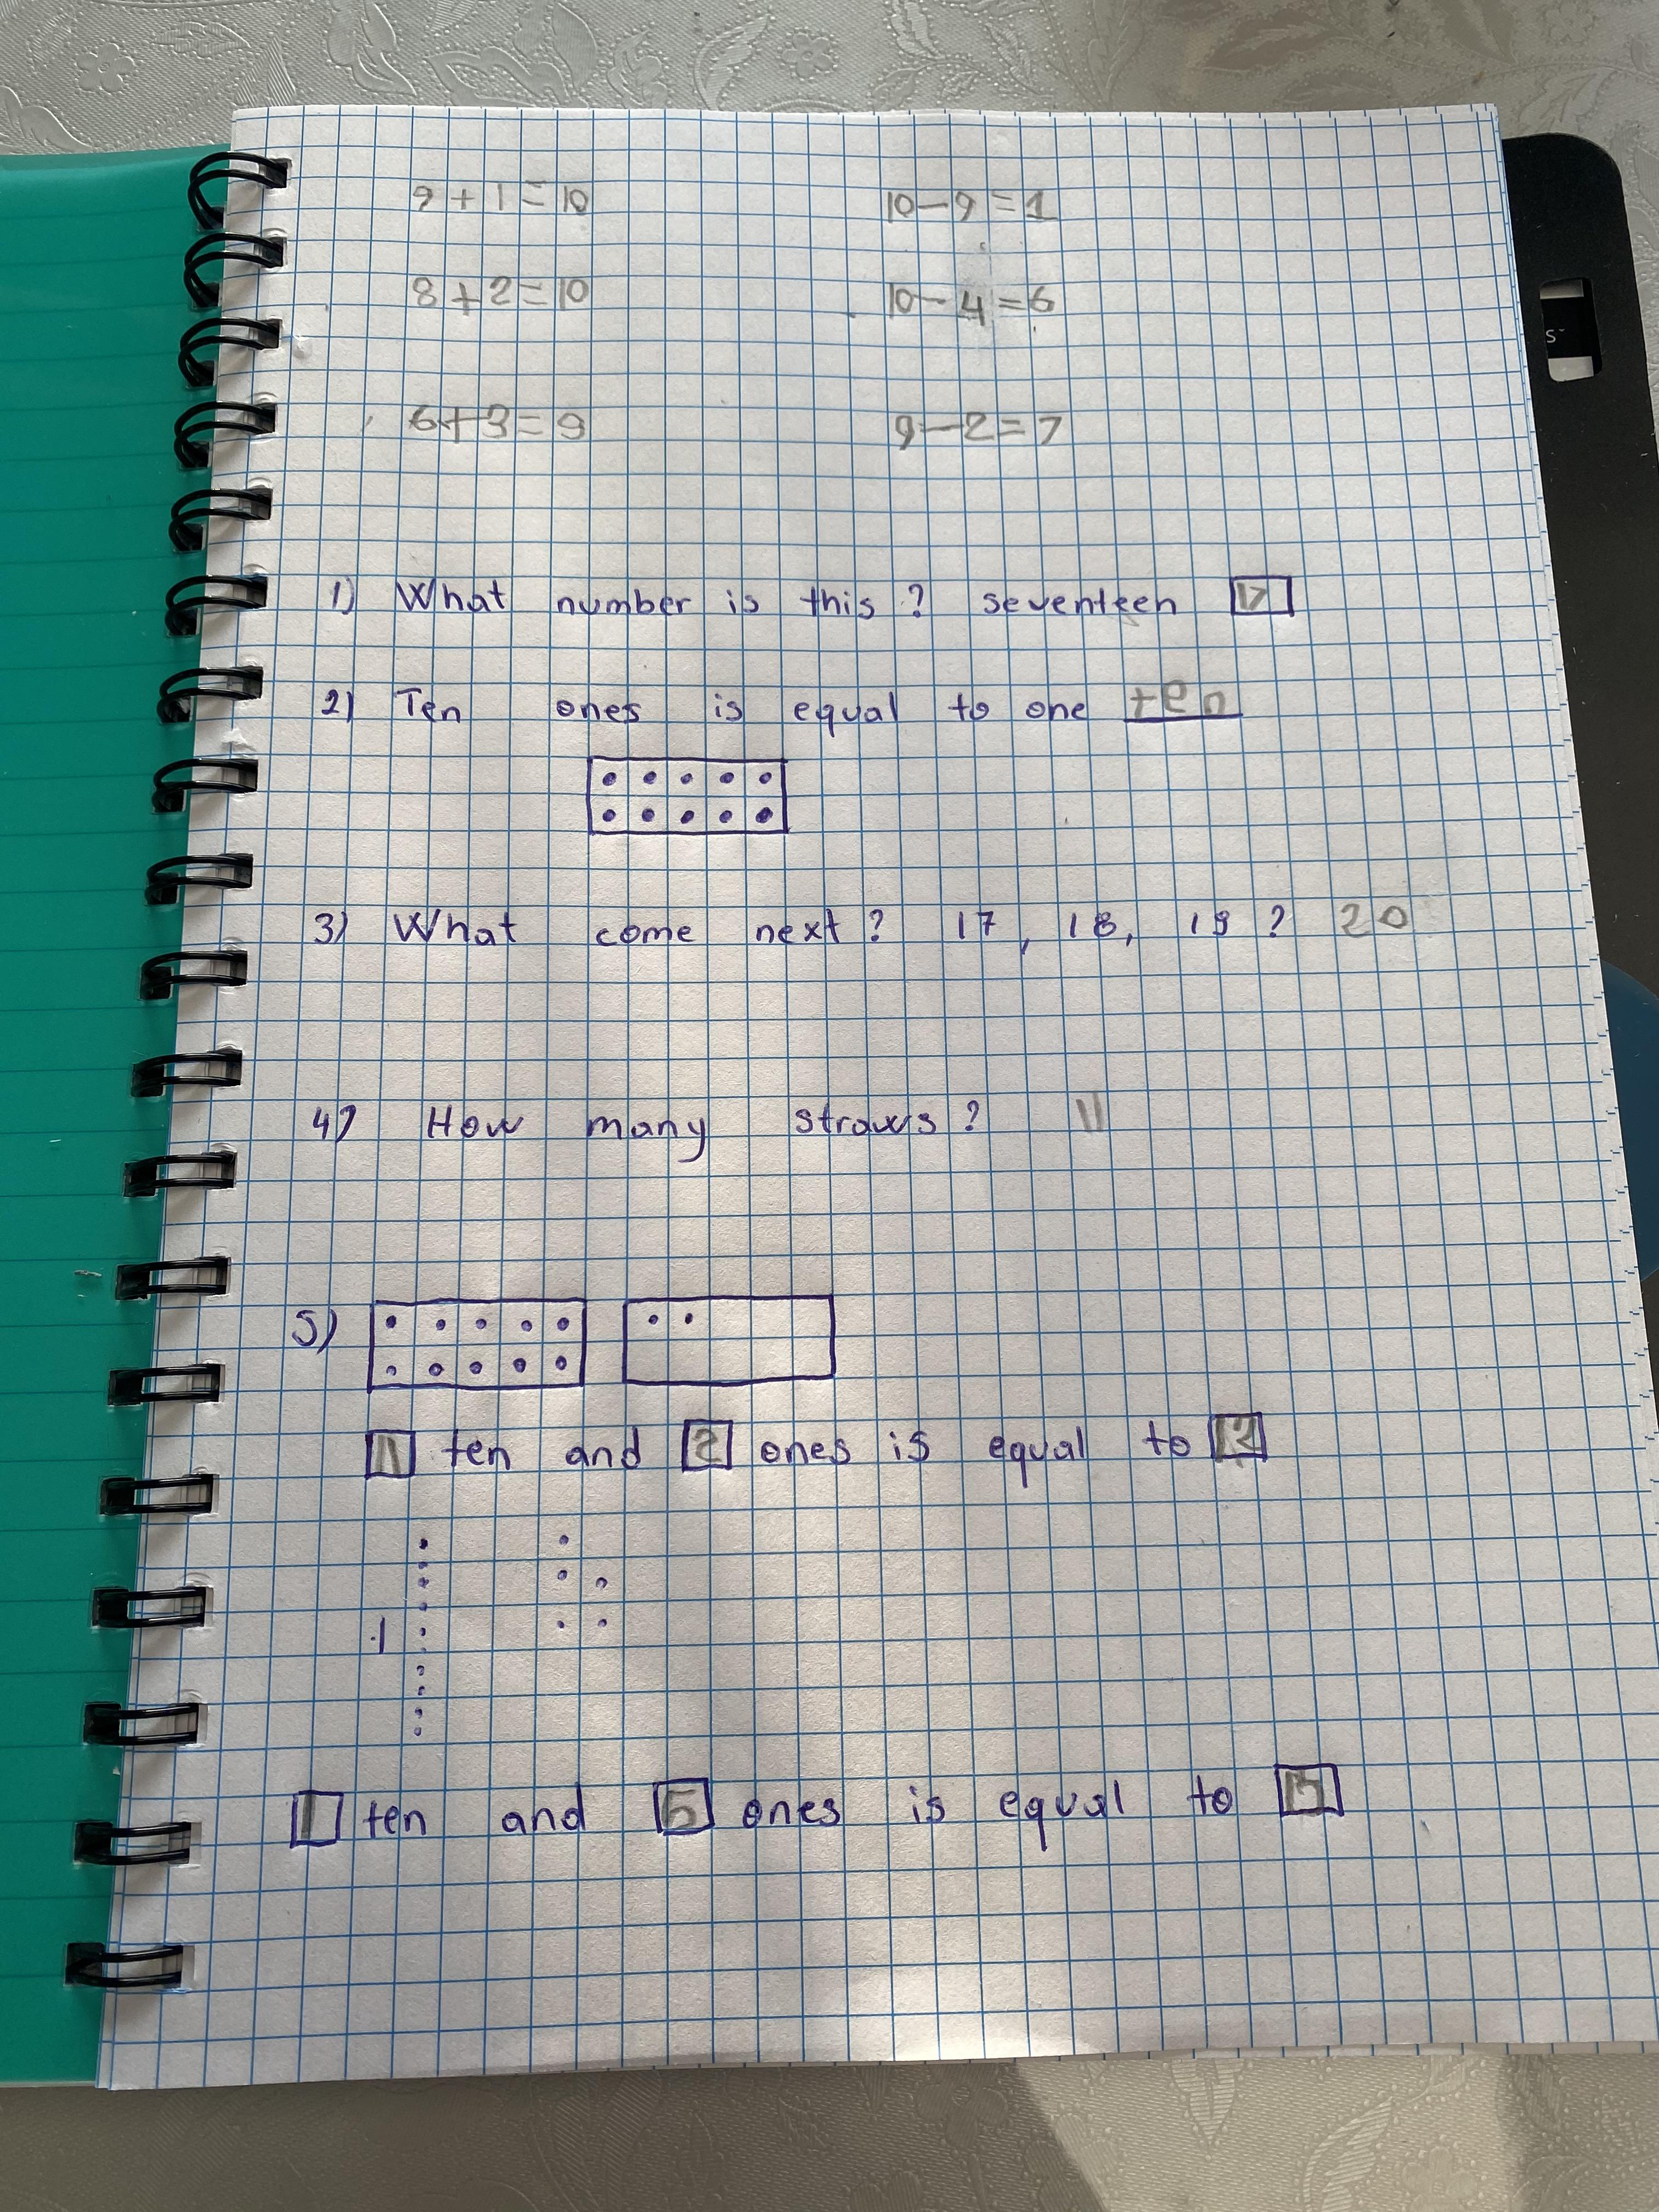 9+1=10 10-9=1
8+2=10 10-4=6
6+3=9 9-2=7
1) What number is this? seventeen 17
2) Ten ones is equal to one ten
3) What come next? 17, 18, 19? 20
4) How many straws? 11
5)
1 ten and 2 ones is equal to 12
1 ten and 5 ones is equal to 15